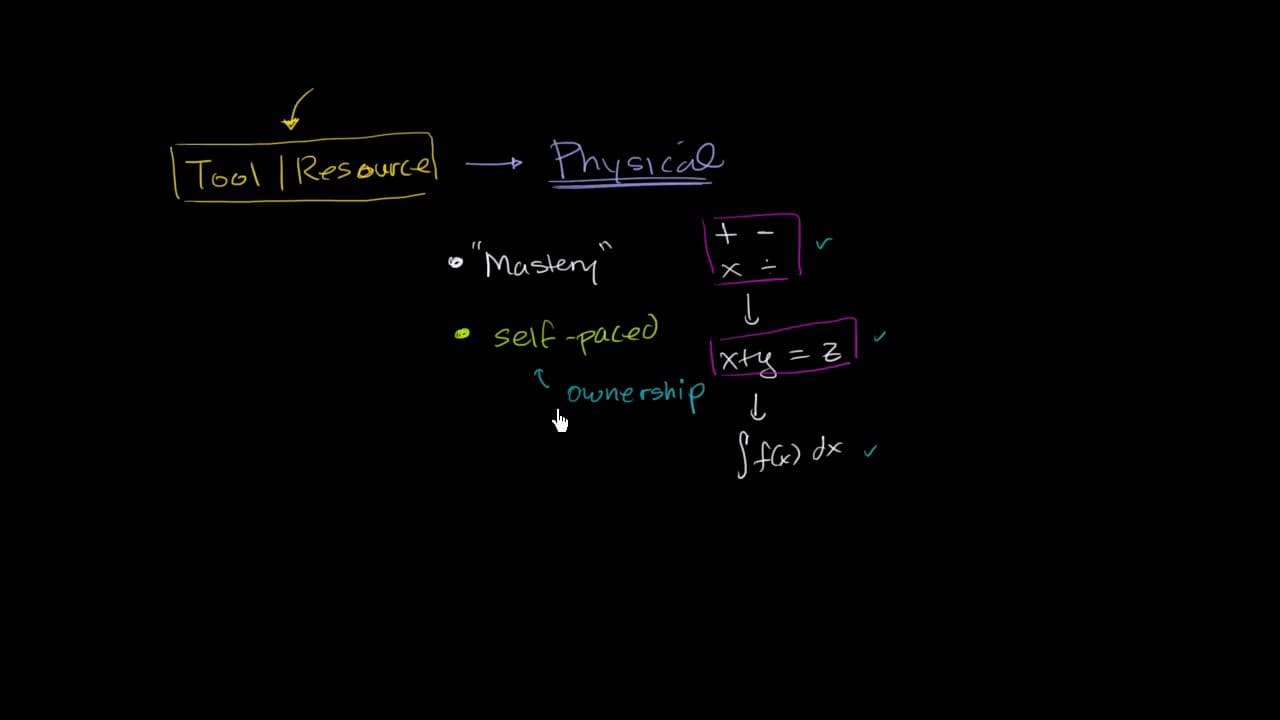 Tool | Resource → Physical
• "Mastery"
+ −
x ÷
↓
• self-paced
x+y = z
ownership
↓
∫f(x) dx